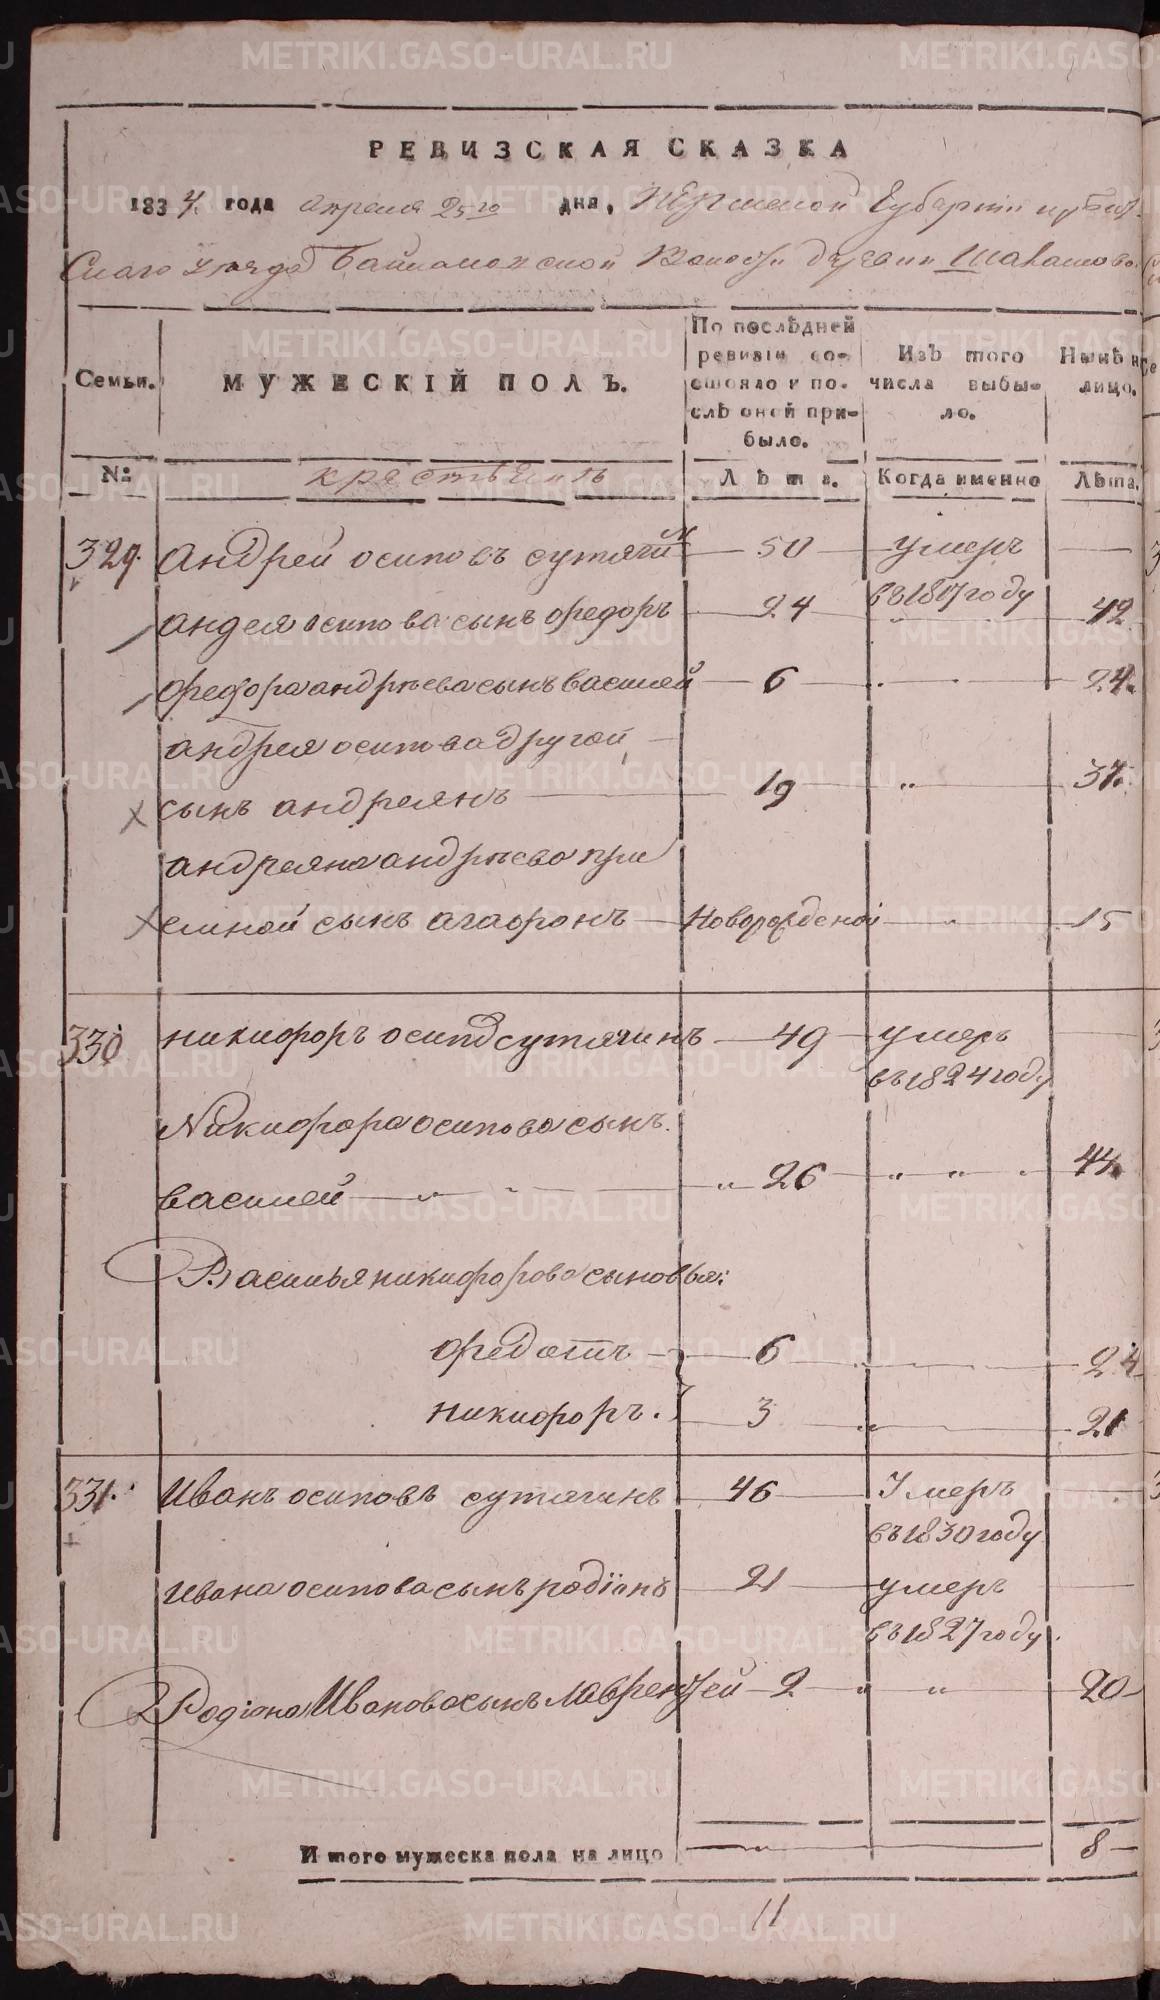 РЕВИЗСКАЯ СКАЗКА
1834 года апреля 25го дня, Пермской Губернии ирбит-
скаго уезда Байкаловской Волости дуревни Шалашово
Семьи.
МУЖЕСКІЙ ПОЛЪ.
По послѣдней ревизіи состояло и послѣ оной прибыло.
Изъ того числа выбыло.
Нынѣ на лицо.
№
крестьянъ
Лѣта.
Когда именно
Лѣта.
329. Андрей осиповъ сутягинъ 50 умеръ
въ 1817 году
андрея осипова сынъ федоръ 24 42
федора андрѣева сынъ василей 6 24.
андрея осипова другой
сынъ андреянъ 19 „ 37.
андреяна андрѣева при
емной сынъ агафонъ Новорожденой „ 15
330 никифоръ осипов сутягинъ 49 умеръ
въ 1824 году
Никифора осипова сынъ
василей „ 26 „ „ 44
Василья никифорова сыновья:
федотъ 6 24
никифоръ. 3 21
331. Иванъ осиповъ сутягинъ 46 Умеръ
въ 1830 году
ивана осипова сынъ родіонъ 21 умеръ
въ 1827 году.
Родіона Иванова сынъ лаврентей 2 „ „ 20
И того мужеска пола на лицо 8
11
METRIKI.GASO-URAL.RU